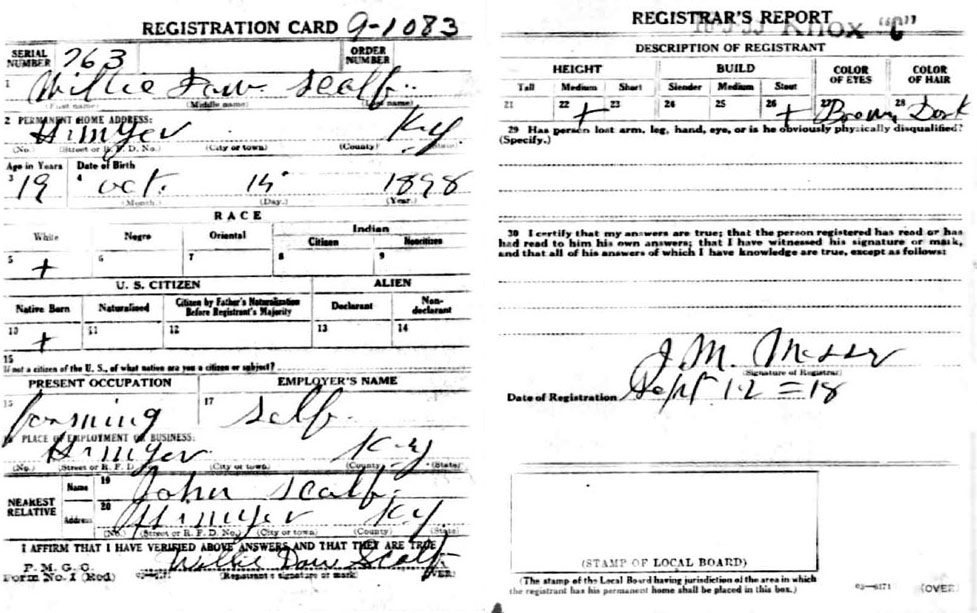 REGISTRATION CARD 9-1083
SERIAL NUMBER 763 ORDER NUMBER
1 Willie Daw Scalf
(First name) (Middle name) (Last name)
2 PERMANENT HOME ADDRESS:
Himyer Ky
(No.) (Street or R. F. D. No.) (City or town) (County) (State)
Age in Years Date of Birth
3 19 4 Oct. 15 1898
(Month.) (Day.) (Year.)
RACE
White Negro Oriental Indian
Citizen Noncitizen
5 + 6 7 8 9
U. S. CITIZEN ALIEN
Native Born Naturalized Citizen by Father's Naturalization Before Registrant's Majority Declarant Non-declarant
10 + 11 12 13 14
15
If not a citizen of the U. S., of what nation are you a citizen or subject?
PRESENT OCCUPATION EMPLOYER'S NAME
farming 17 self
PLACE OF EMPLOYMENT OR BUSINESS:
Himyer Ky
(No.) (Street or R. F. D. No.) (City or town) (County) (State)
NEAREST RELATIVE Name 19 John Scalf
Address 20 Himyer Ky
(No.) (Street or R. F. D. No.) (City or town) (County) (State)
I AFFIRM THAT I HAVE VERIFIED ABOVE ANSWERS AND THAT THEY ARE TRUE
P. M. G. O. Willie Daw Scalf
Form No. 1 (Red) 03-6171 (Registrant's signature or mark) (OVER)
REGISTRAR'S REPORT
Knox "C"
DESCRIPTION OF REGISTRANT
HEIGHT BUILD COLOR OF EYES COLOR OF HAIR
Tall Medium Short Slender Medium Stout
21 22 + 23 24 25 26 + 27 Brown 28 Dark
29 Has person lost arm, leg, hand, eye, or is he obviously physically disqualified?
(Specify.)
30 I certify that my answers are true; that the person registered has read or has
had read to him his own answers; that I have witnessed his signature or mark,
and that all of his answers of which I have knowledge are true, except as follows:
J. M. Messer
(Signature of Registrar)
Date of Registration Sept 12 = 18
(STAMP OF LOCAL BOARD)
(The stamp of the Local Board having jurisdiction of the area in which
the registrant has his permanent home shall be placed in this box.)
03-6171 (OVER)